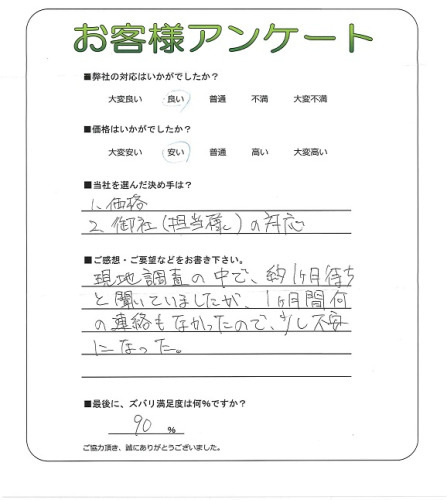 お客様アンケート
■弊社の対応はいかがでしたか?
大変良い 良い 普通 不満 大変不満
■価格はいかがでしたか?
大変安い 安い 普通 高い 大変高い
■当社を選んだ決め手は?
1. 価格
2. 御社(担当様)の対応
■ご感想・ご要望などをお書き下さい。
現地調査の中で、約1ヶ月待ち
と聞いていましたが、1ヶ月間何
の連絡もなかったので、少し不安
になった。
■最後に、ズバリ満足度は何%ですか?
90 %
ご協力頂き、誠にありがとうございました。